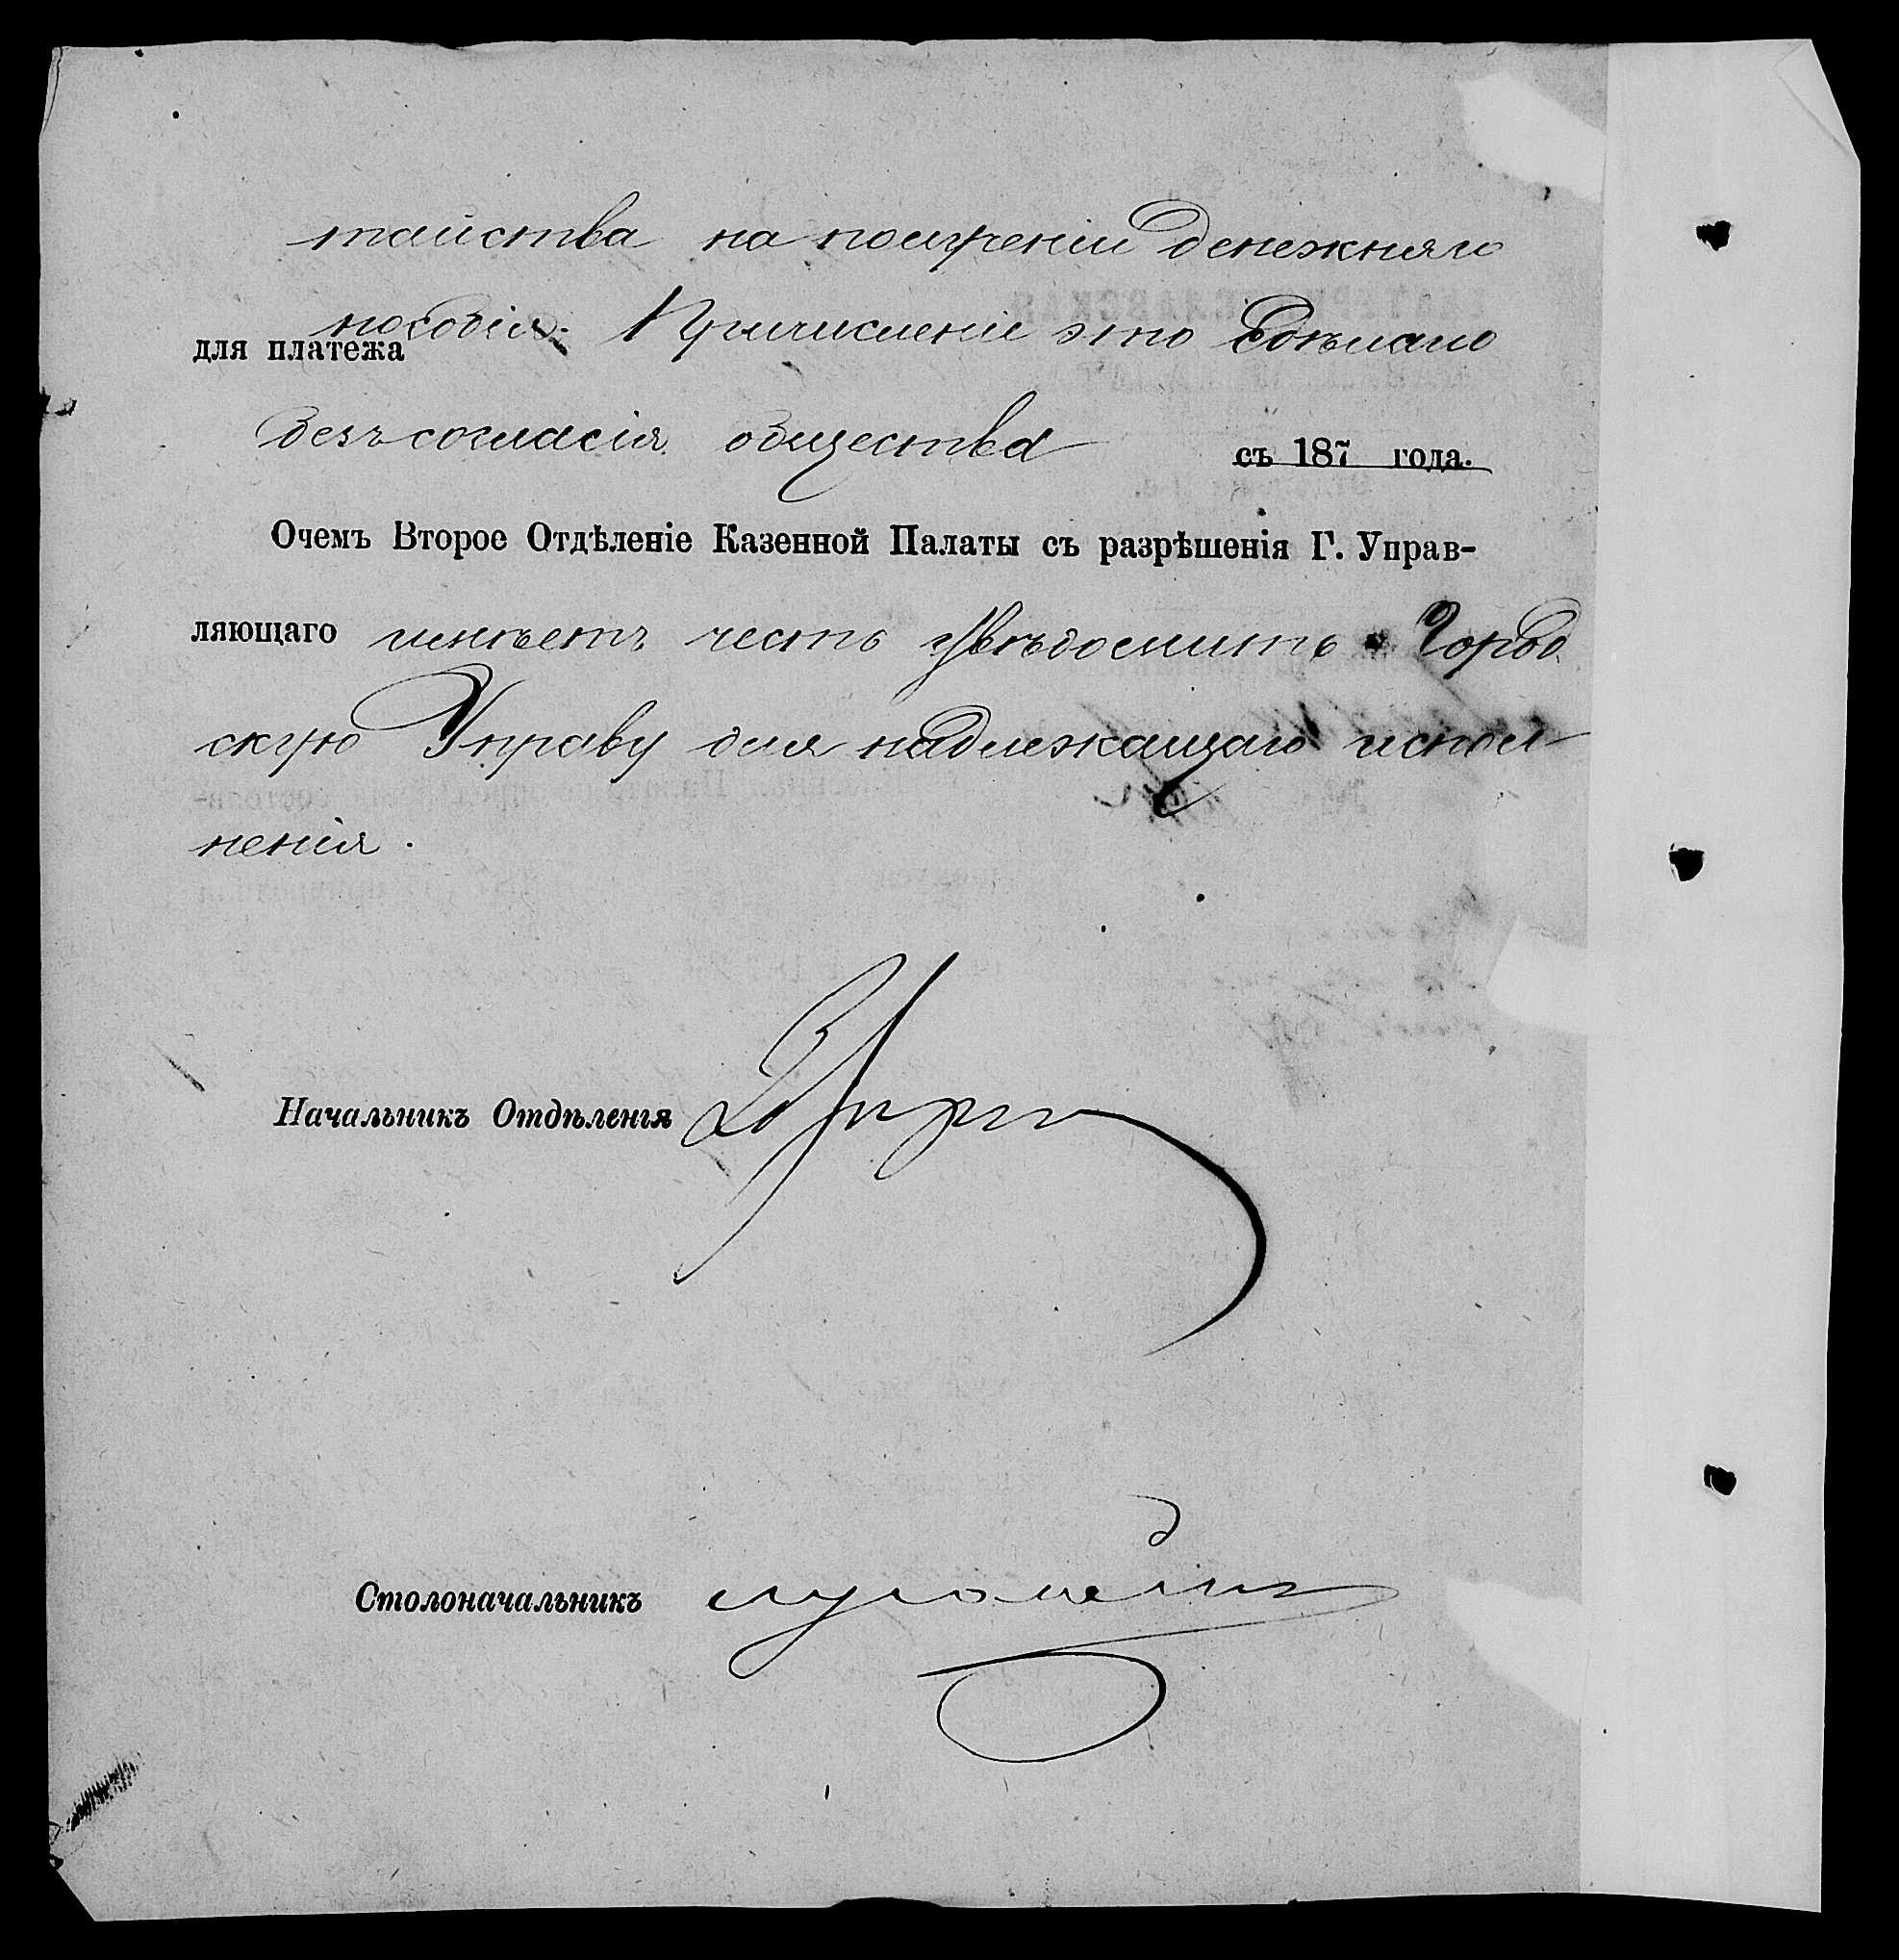 тайства на полученіи денежняго
пособія. Причисленіе это Сдѣлано
для платежа
безъ согласія общества съ 187 года.
Очемъ Второе Отдѣленіе Казенной Палаты съ разрѣшенія Г. Управ-
ляющаго имѣетъ честь увѣдомить Город
скую Управу для надлежащаго испол
ненія.
Начальникъ Отдѣленія
Столоначальникъ